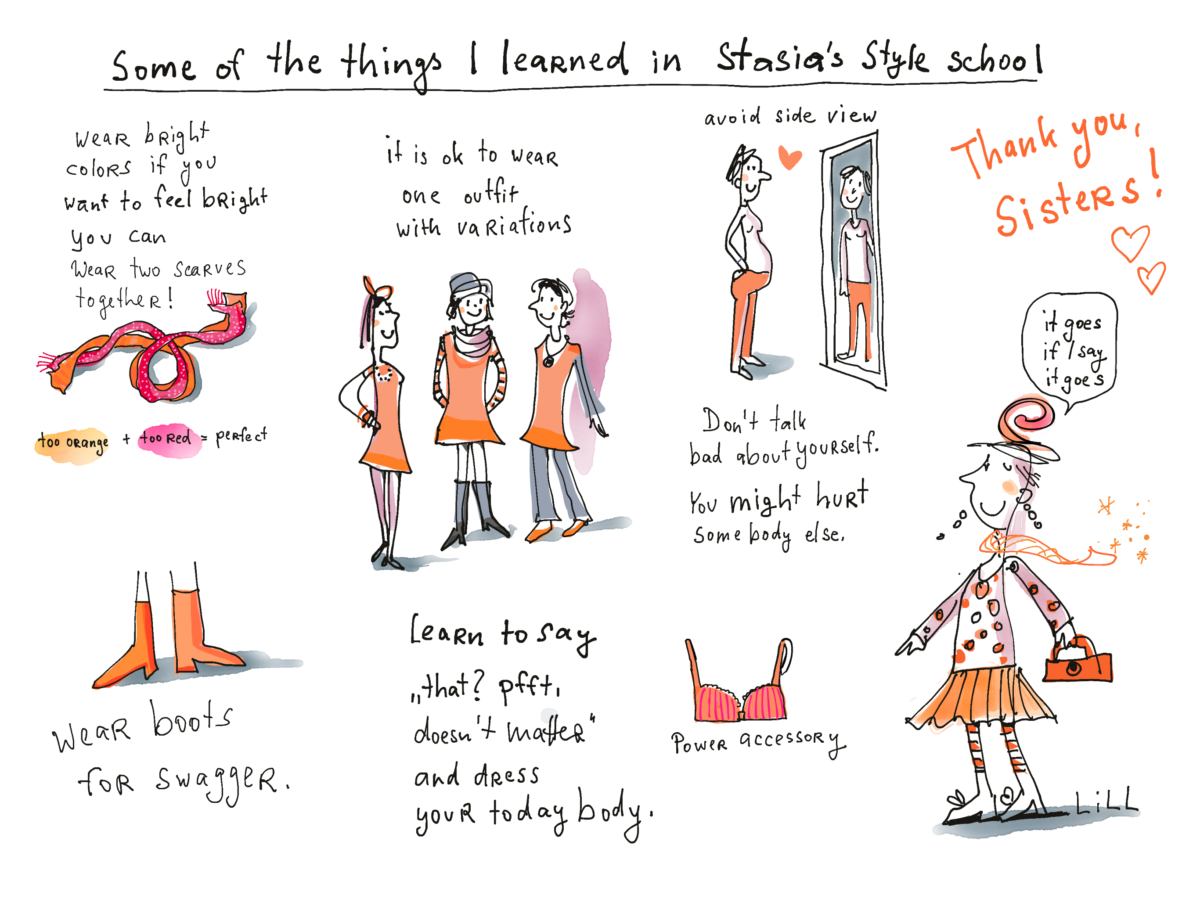 Some of the things I learned in Stasia's Style school
wear bright
colors if you
want to feel bright
you can
wear two scarves
together!
too orange + too red = perfect
it is ok to wear
one outfit
with variations
avoid side view
Don't talk
bad about yourself.
You might hurt
some body else.
Thank you,
Sisters!
it goes
if I say
it goes
wear boots
for swagger.
Learn to say
„that? pfft,
doesn't matter“
and dress
your today body.
Power accessory
LiLL